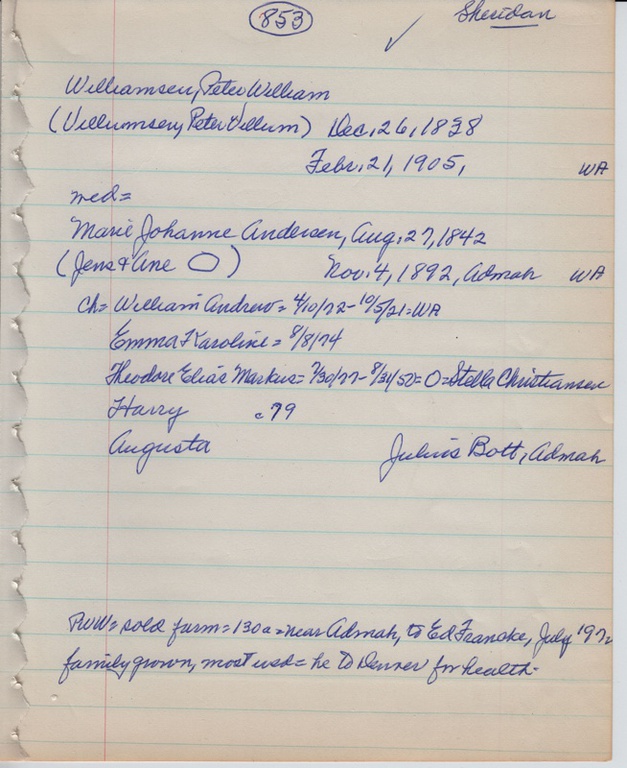 853
Sheridan
Williamsen, Peter William
(Villiumsen, Peter Villum) Dec. 26, 1838
Febr. 21, 1905, WA
med=
Marie Johanne Andersen, Aug. 27, 1842
(Jens & Ane O) Nov. 4, 1892, Admah WA
ch= William Andrew= 4/10/72-10/5/21=WA
Emma Karoline= 8/8/74
Theodore Elias Markus= 7/30/77-8/31/50=O=Stella Christiansen
Harry c79
Augusta Julius Bott, Admah
PWW= sold farm=130a=near Admah, to Ed Francke, July '97
family grown, most usd= he to Denver for health-